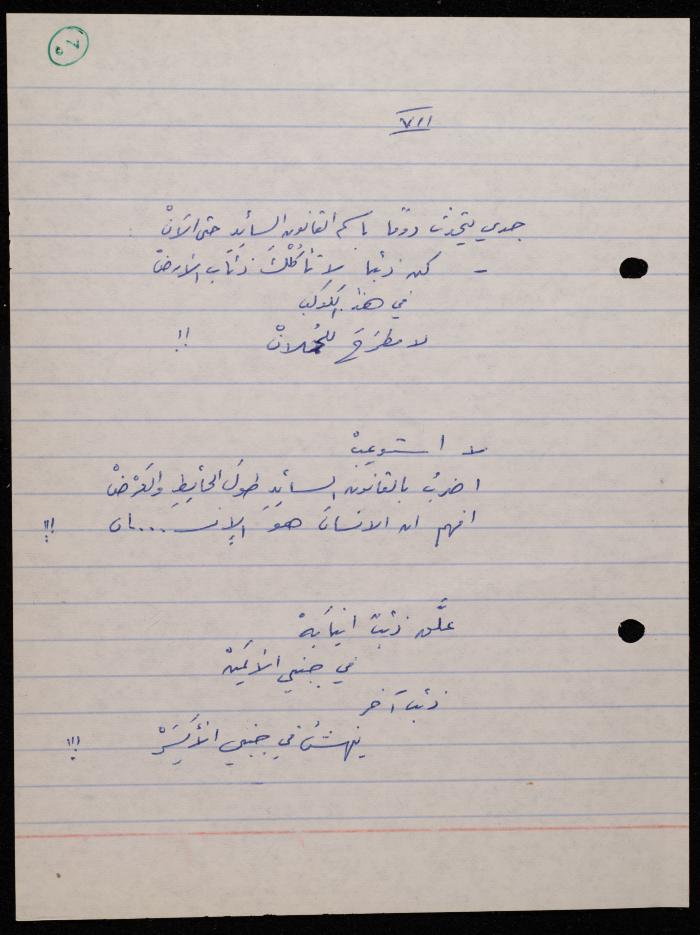 VII
جدي يتحدث دومًا باسم القانون السائد حتى الآنْ
- كن ذئبا لا تأكلْكَ ذئاب الأرضْ
في هذا الكوكب
لا مطرَحَ للحُملانْ !!
لا استوعبْ
اضربُ بالقانون السائدِ طولَ الحائِطِ والعَرْضْ
افهم ان الانسانَ هو الإنســ....ان !!!
علَّق ذئبٌ انيابَهْ
في جنبي الأيمَنْ
ذئب آخر
ينهشُ في جنبي الأَيْسَرْ !!!